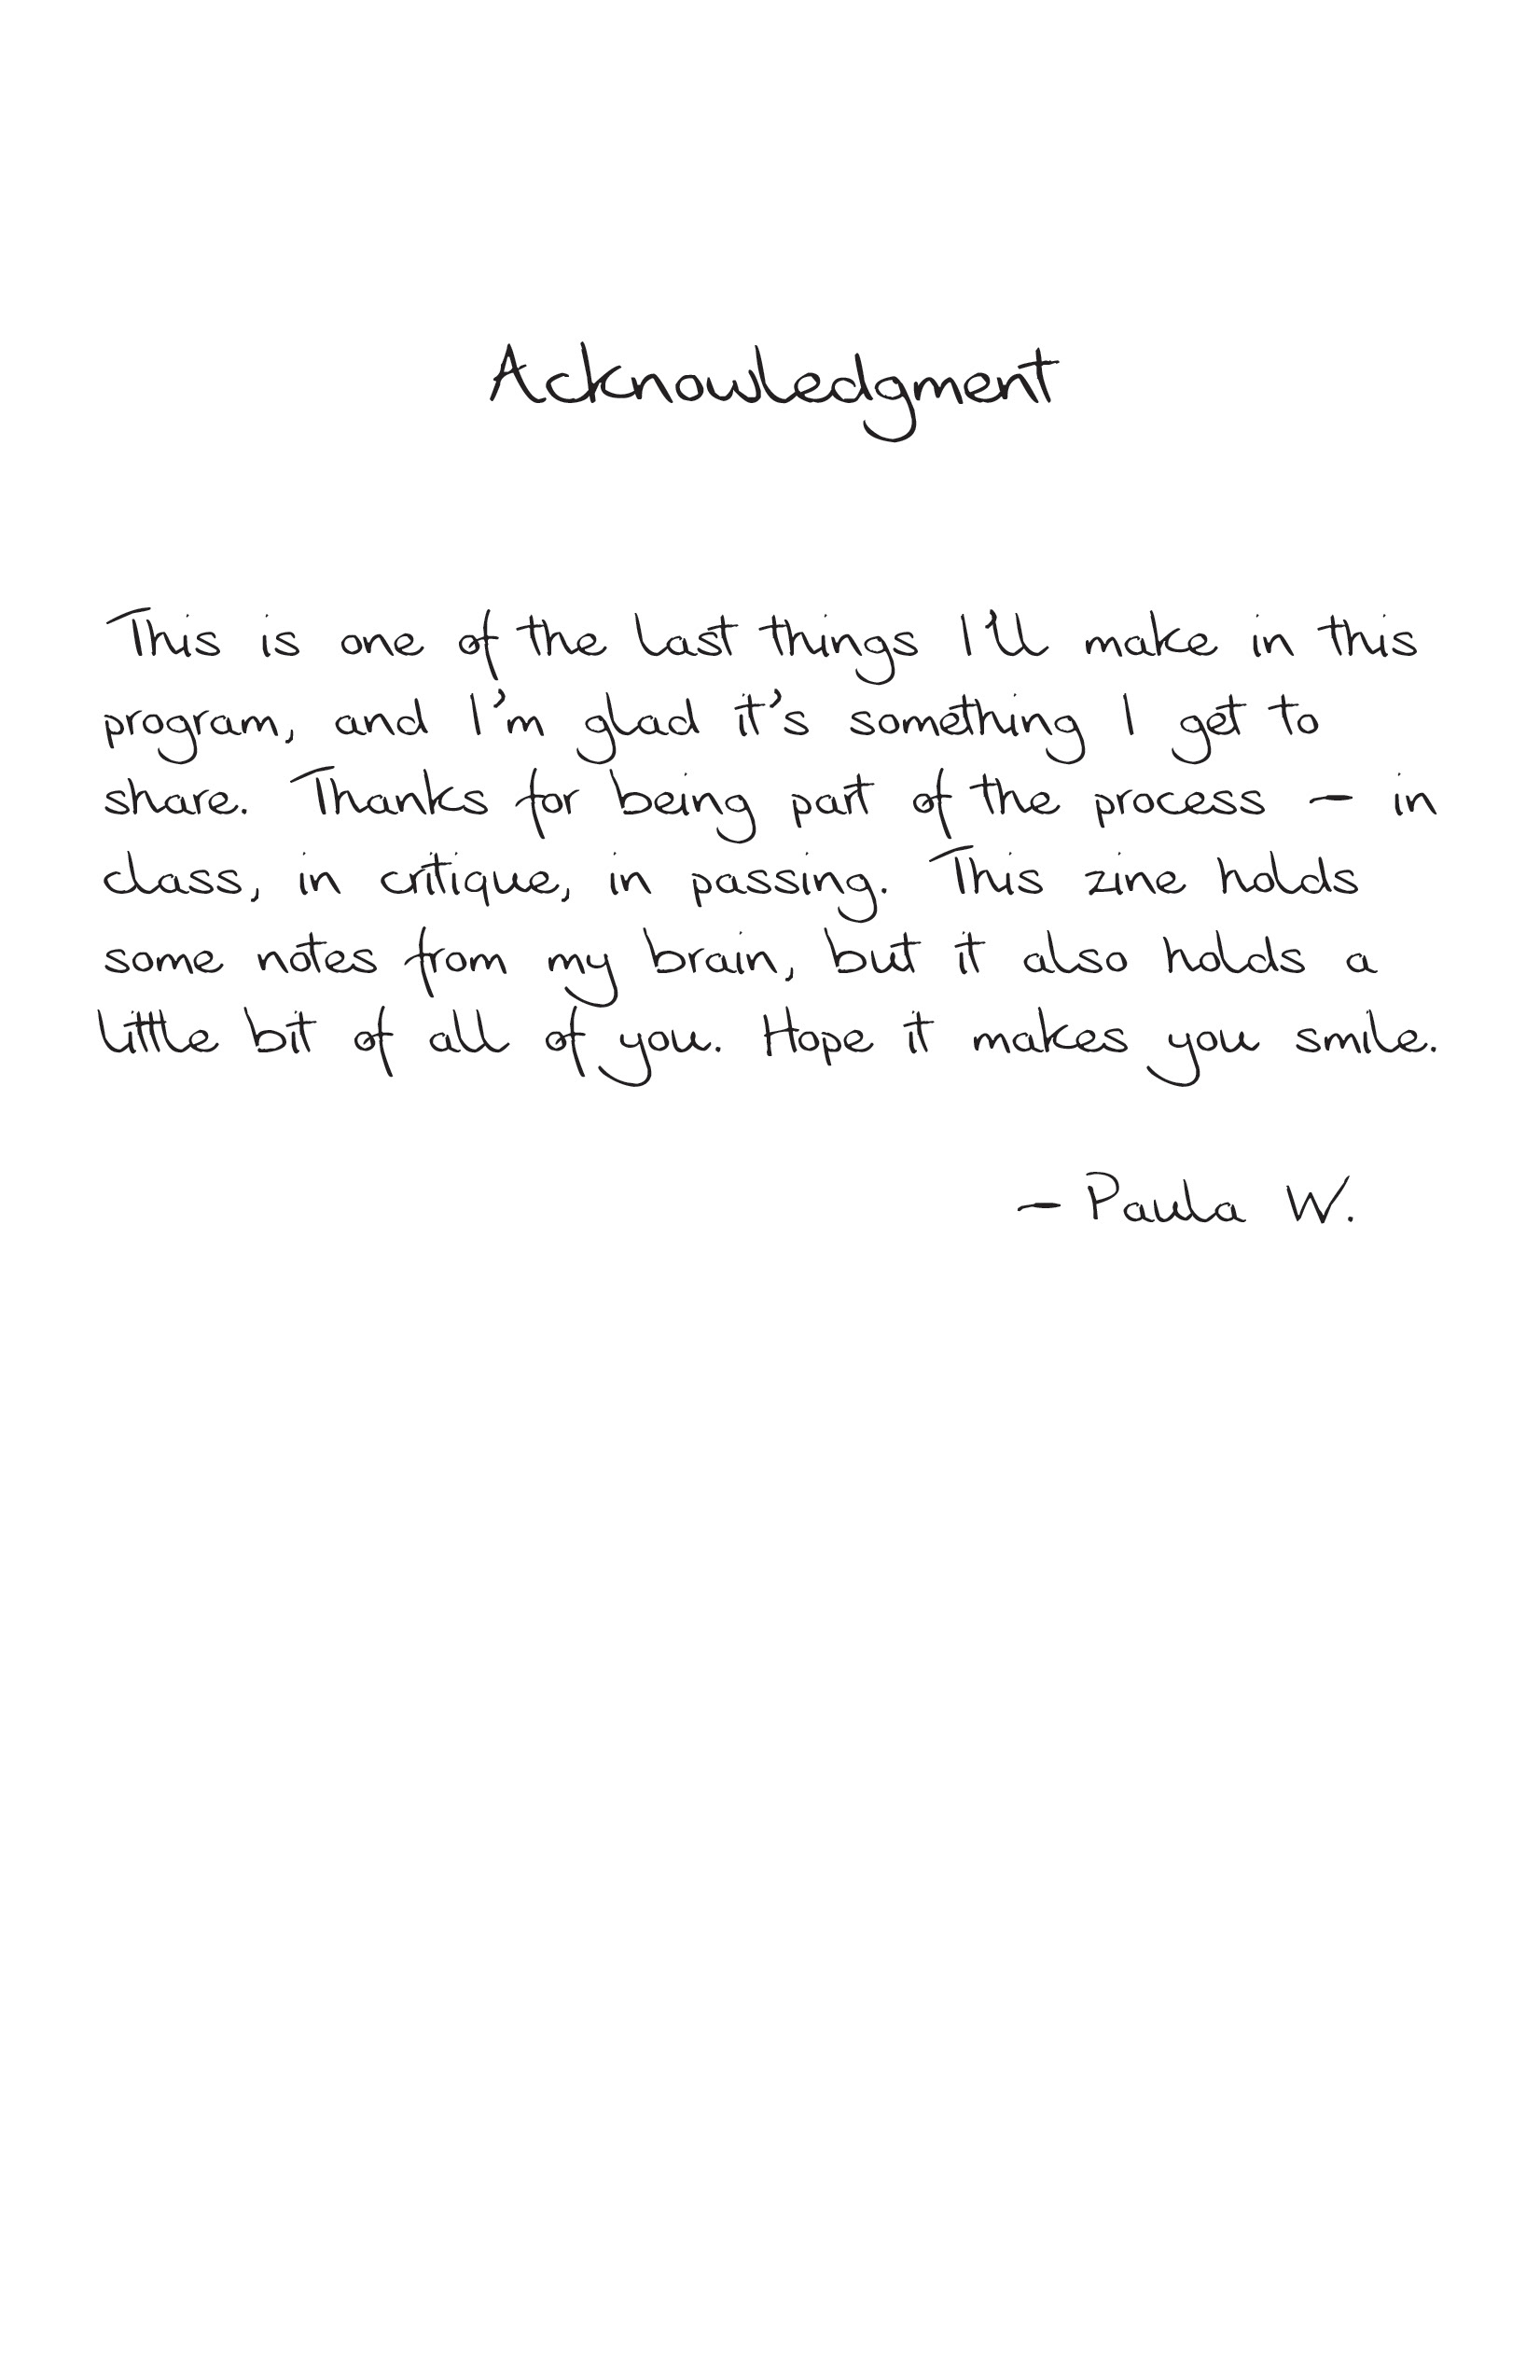 Acknowledgment
This is one of the last things I'll make in this
program, and I'm glad it's something I get to
share. Thanks for being part of the process – in
class, in critique, in passing. This zine holds
some notes from my brain, but it also holds a
little bit of all of you. Hope it makes you smile.
– Paula W.